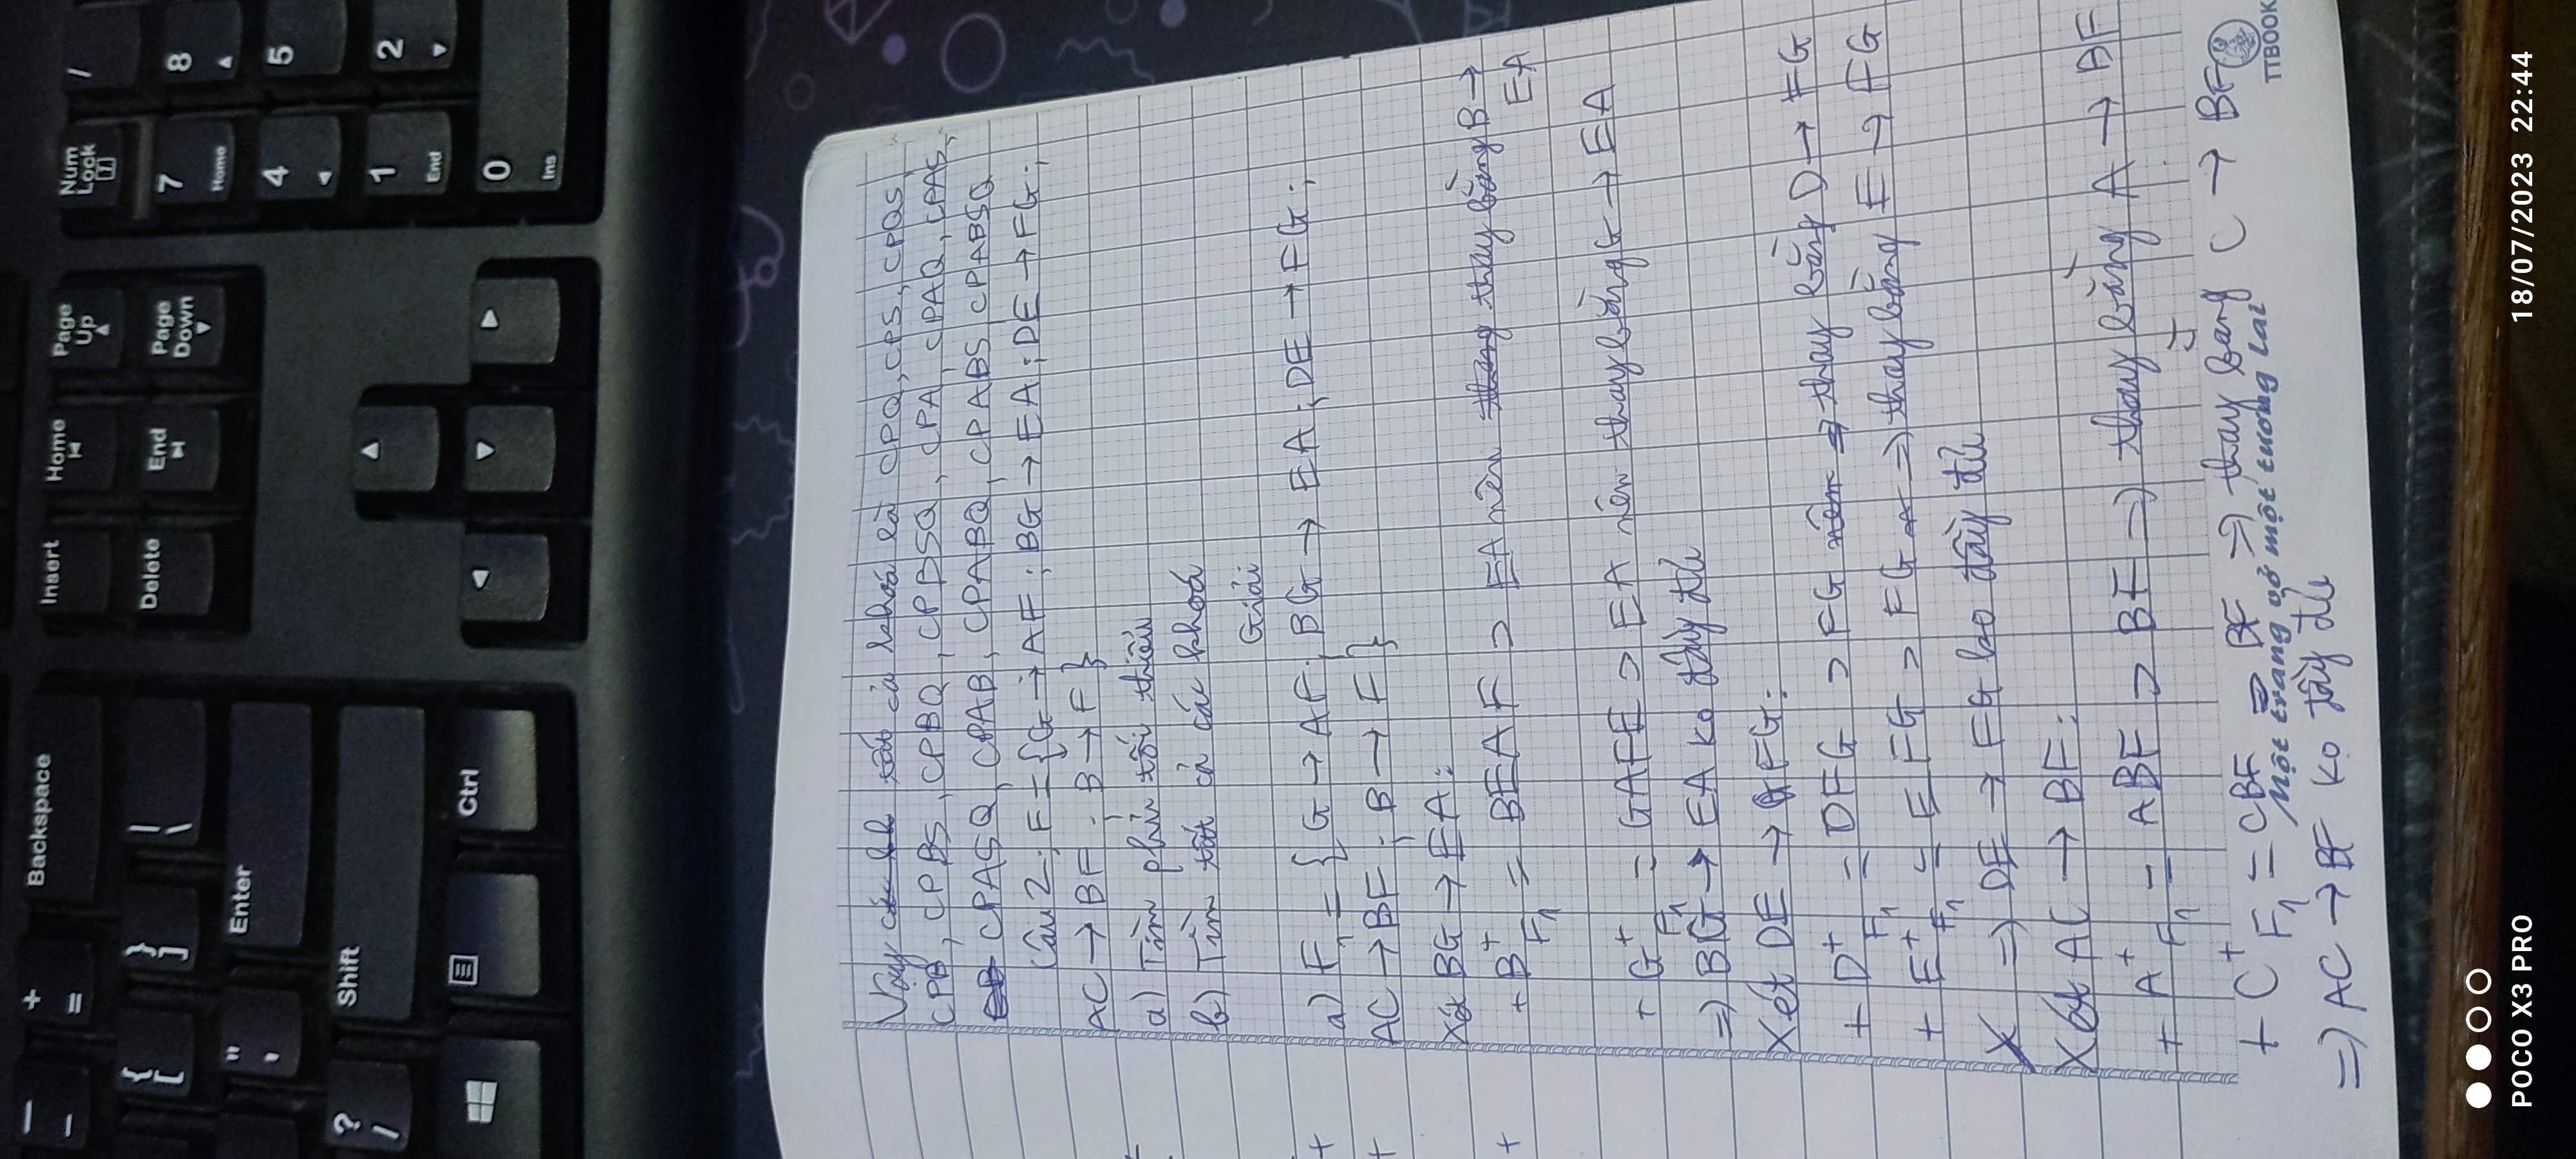 — + Backspace Insert Home Page Up Num Lock /
– =
{ } | Delete End Page Down 7 8
[ ] \ Home
" Enter 4 5
'
? Shift 1 2
/ End
Ctrl 0
Ins
Vậy tất cả khoá là CPQ, CPS, CPQS,
CPB, CPBS, CPBQ, CPBSQ, CPA, CPAQ, CPAS,
CPASQ, CPAB, CPABQ, CPABS, CPABSQ
Câu 2: F = {G → AF; BG → EA; DE → FG;
AC → BF; B → F}
a) Tìm phủ tối thiểu
b) Tìm tất cả các khoá
Giải
a) F₁ = {G → AF; BG → EA; DE → FG;
AC → BF; B → F}
Xét BG → EA:
+ B⁺F₁ = BEAF ⊃ EA nên thay bằng B →
EA
+ G⁺F₁ = GAFE ⊃ EA nên thay bằng G → EA
=) BG → EA ko đầy đủ
Xét DE → FG:
+ D⁺F₁ = DFG ⊃ FG => thay bằng D → FG
+ E⁺F₁ = EFG ⊃ FG => thay bằng E → FG
=) DE → FG ko đầy đủ
Xét AC → BF:
+ A⁺F₁ = ABF ⊃ BF =) thay bằng A → BF
+ C⁺F₁ = CBF ⊃ BF =) thay bằng C → BF
Một trang vở một tương lai
TTBOOK
=) AC → BF ko đầy đủ
POCO X3 PRO 18/07/2023 22:44